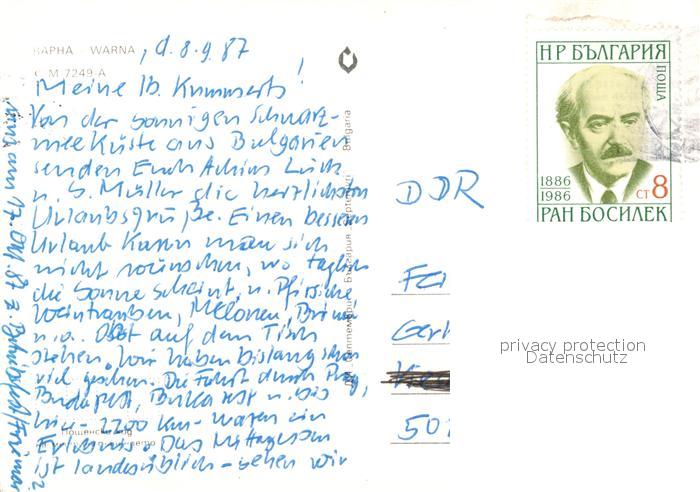 ВАРНА WARNA, d. 8.9.87
M 7249-A
Meine lb. Kummerts!
Von der sonnigen Schwarz-
meerküste aus Bulgarien
senden Euch Achim Lück
u. S. Müller die herzlichsten
Urlaubsgrüße. Einen besseren
Urlaub kann man sich
nicht wünschen, wo täglich
die Sonne scheint, u. Pfirsiche
Weintrauben, Melonen, Birnen
u.a. Obst auf dem Tisch
stehen. Wir haben bislang schon
viel gesehen. Die Fahrt durch Prag,
Budapest, Bukarest u. bis
hier - 2200 km - waren ein
Erlebnis. Das Mittagessen
ist landesüblich - sehen wir
uns am 17. Okt. 87 z.
Bulgaria
България
DDR
Fa
Ger
50
НР БЪЛГАРИЯ
ПОЩА
1886
1986
СТ 8
РАН БОСИЛЕК
privacy protection
Datenschutz